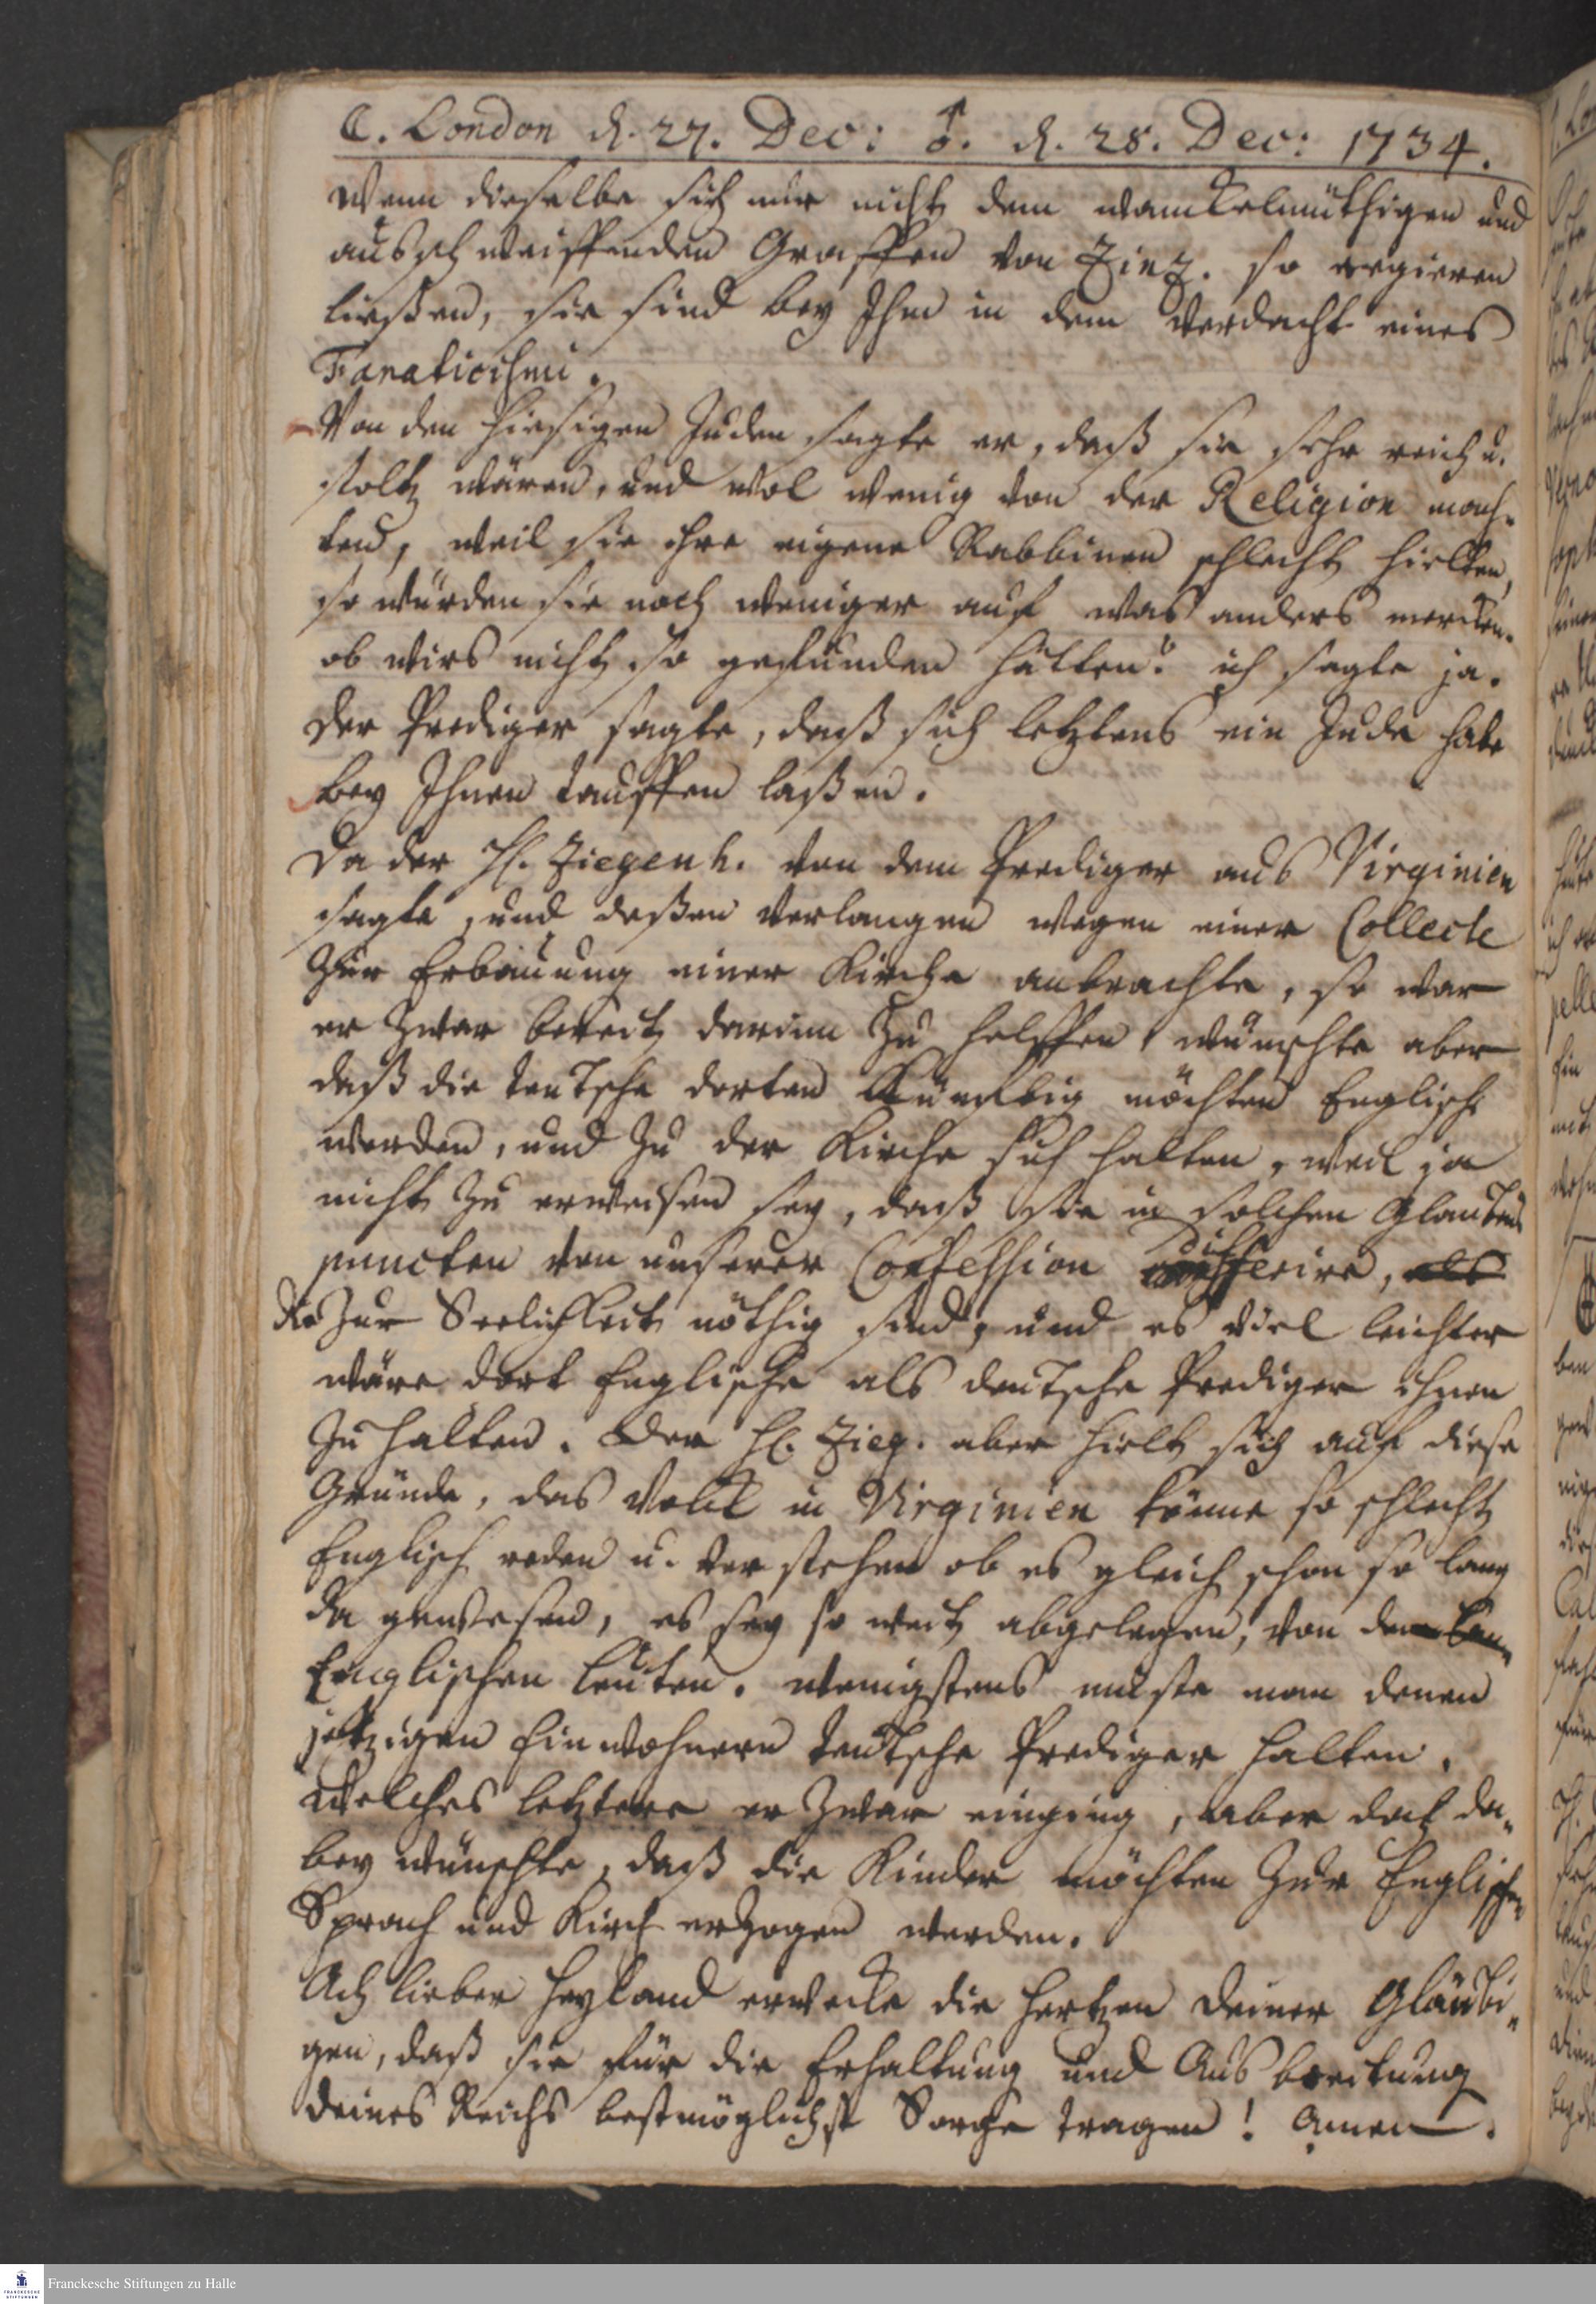 ☾. London d. 27. Dec: ♂. d. 28. Dec: 1734.
wenn dieselbe sich nur nicht dem wanckelmüthigen und
ausschweiffenden Graffen von Zinz. so regieren
ließen, sie sind bey Ihm in dem Verdacht eines
Fanaticismi.
Von den hiesigen Juden sagte er, daß sie sehr reich u.
stoltz wären, und wol wenig von der Religion mach-
ten, weil sie ihre eigene Rabbinen schlecht hielten,
so würden sie noch weniger auf was anders mercken.
ob wirs nicht so gefunden hätten? ich sagte ja.
Der Prediger sagte, daß sich letztens ein Jude habe
bey Ihnen tauffen laßen.
Da der H. Ziegenh. von dem Prediger aus Virginien
sagte, und deßen Verlangen wegen einer Collecte
zur Erbauung einer Kirche anbrachte, so war
er zwar bereit darinn zu helffen, wünschte aber
daß die teutsche dorten künfftig möchten Englisch
werden, und zu der Kirche sich halten, weil ja
nicht zu erweisen sey, daß sie in solchen Glaubens
puncten von unserer Confession differire, als
die zur Seelichkeit nöthig sind, und es viel leichter
wäre dort Englische als deutsche Prediger ihnen
zu halten. Der H. Zieg. aber hielt sich auf diese
Gründe, das Volck in Virginien könne so schlecht
Englisch reden u. verstehen ob es gleich schon so lang
da gewesen, es sey so weit abgelegen, von den
Englischen Leuten. wenigstens müste man denen
jetzigen Einwohnern teutsche Prediger halten.
welches letztere er zwar einging, aber da-
bey wünschte, daß die Kinder möchten zur Englischen
Sprach und Kirch erzogen werden.
Ach lieber Heyland erwecke die Hertzen deiner Gläubi-
gen, daß sie für die Erhaltung und Ausbreitung
deines Reichs bestmöglichst Sorge tragen! Amen.
Franckesche Stiftungen zu Halle